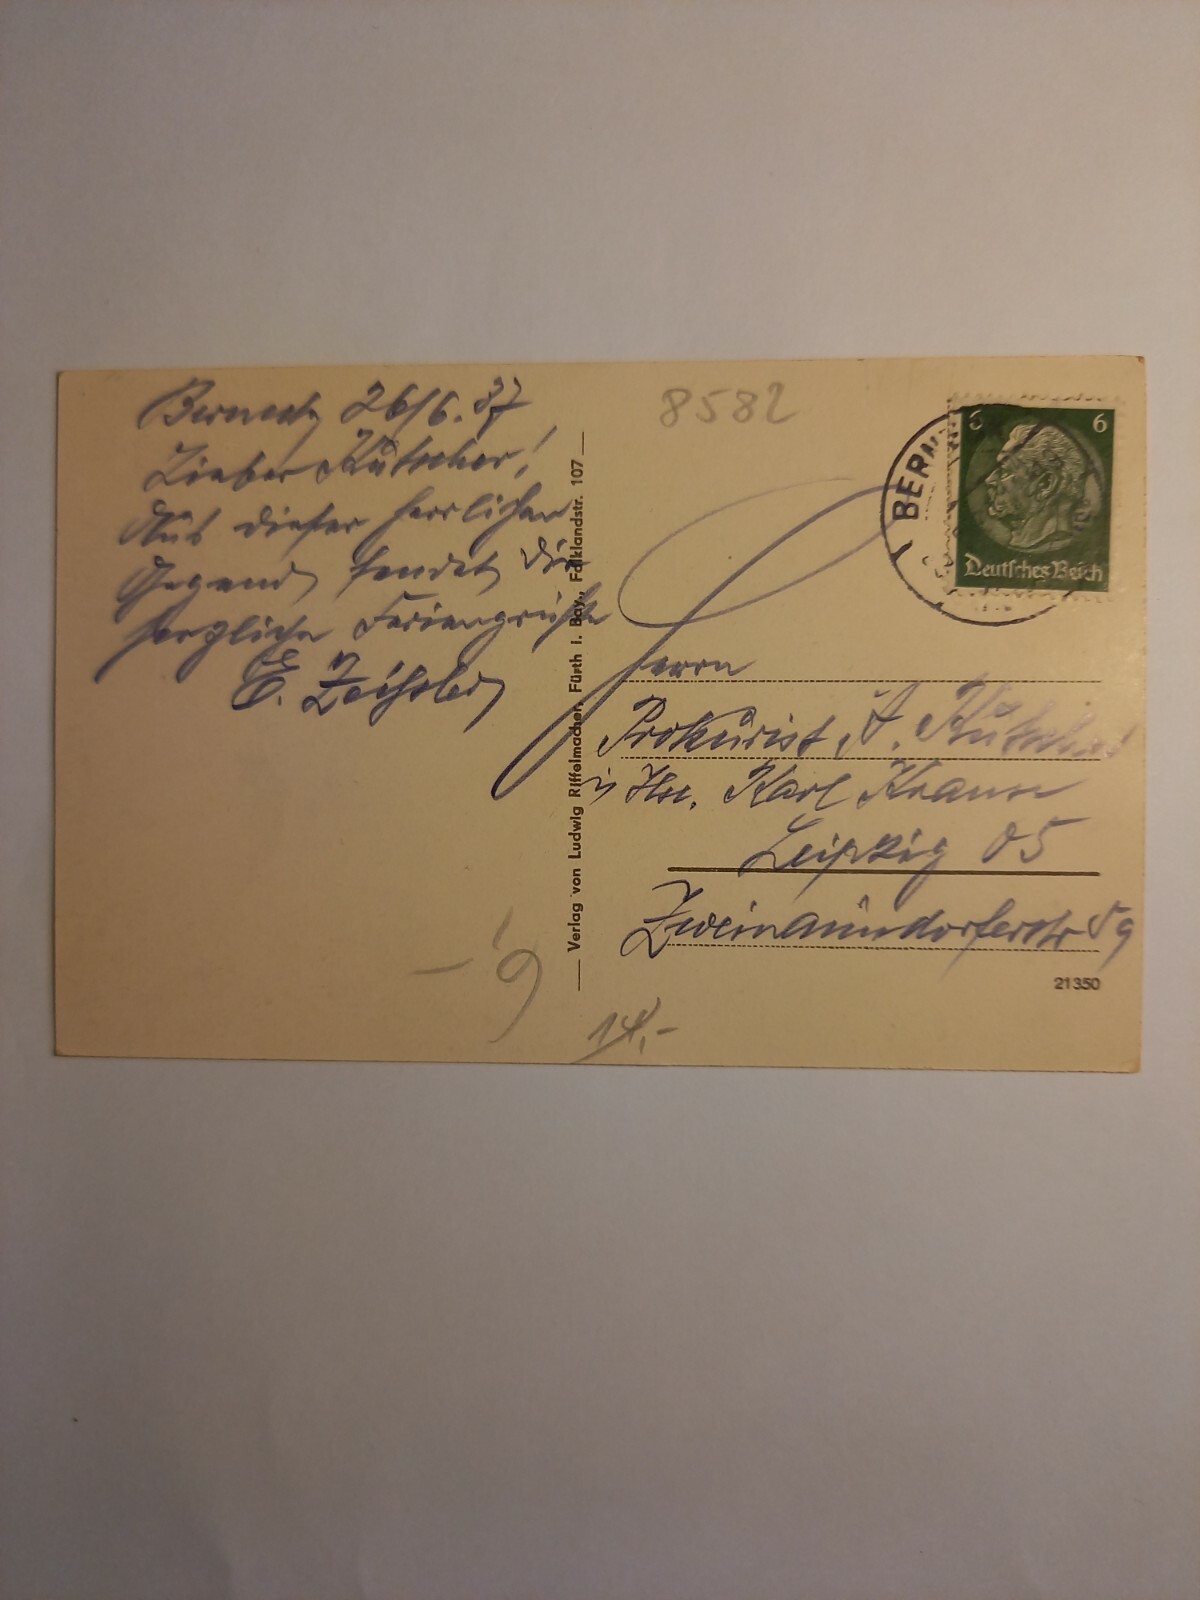 Berneck 26/6. 37
Lieber Kutscher!
Aus dieser herrlichen
Gegend sendet Dir
herzliche Feriengrüsse
E.
Verlag von Ludwig Riffelmacher, Fürth i. Bay., Falklandstr. 107
8582
BERN
6 6
Deutsches Reich
Herrn
Prokurist A. Kutscher
Karl Krause
Leipzig O5
Zweinaundorferstr 59
21350
14,-